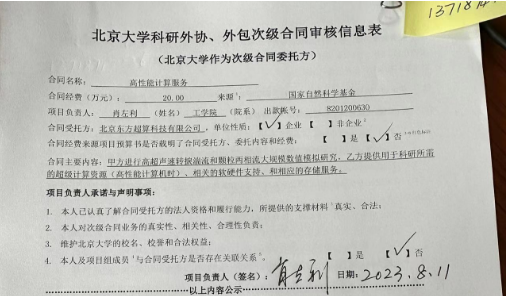 13718
北京大学科研外协、外包次级合同审核信息表
（北京大学作为次级合同委托方）
合同名称： 高性能计算服务
合同经费（万元）： 20.00 来源1： 国家自然科学基金
项目负责人： 肖左利 （姓名） 工学院 （院系） 出款账号： 8201200630
合同受托方：北京东方超算科技有限公司，单位性质：【√】企业 【 】非企业2
合同经费来源项目预算书是否载明了合同受托方、委托内容和经费： 【 】是 【√】否
合同主要内容：甲方进行高超声速转捩湍流和颗粒两相流大规模数值模拟研究，乙方提供用于科研所需
的超级计算资源（高性能计算机时）、相关的软硬件支持、和相应的存储服务。
项目负责人承诺与声明事项：
1. 本人已认真了解合同受托方的法人资格和履行能力，所提供的支撑材料3真实、合法；
2. 本人对次级合同业务的真实性、相关性、合理性负责；
3. 维护北京大学的校名、校誉和合法权益；
4. 本人及项目组成员4与合同受托方是否存在关联关系5。 【 】是 【√】否
项目负责人（签名）： 肖左利 日期：2023.8.11
以上内容公示